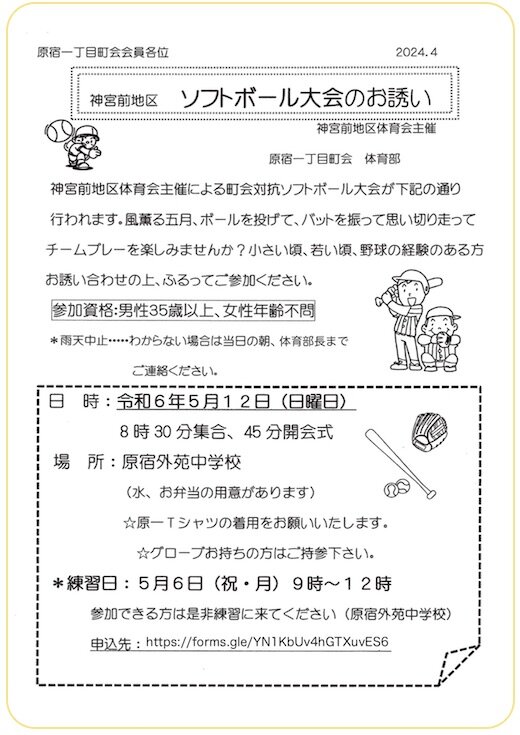 原宿一丁目町会会員各位
2024.4
神宮前地区 ソフトボール大会のお誘い
神宮前地区体育会主催
原宿一丁目町会 体育部
神宮前地区体育会主催による町会対抗ソフトボール大会が下記の通り
行われます。風薫る五月、ボールを投げて、バットを振って思い切り走って
チームプレーを楽しみませんか？小さい頃、若い頃、野球の経験のある方
お誘い合わせの上、ふるってご参加ください。
参加資格:男性35歳以上、女性年齢不問
＊雨天中止・・・・・わからない場合は当日の朝、体育部長まで
ご連絡ください。
日 時：令和６年５月１２日（日曜日）
８時３０分集合、４５分開会式
場 所：原宿外苑中学校
（水、お弁当の用意があります）
☆原一Ｔシャツの着用をお願いいたします。
☆グローブお持ちの方はご持参下さい。
＊練習日：５月６日（祝・月）９時～１２時
参加できる方は是非練習に来てください（原宿外苑中学校）
申込先：https://forms.gle/YN1KbUv4hGTXuvES6